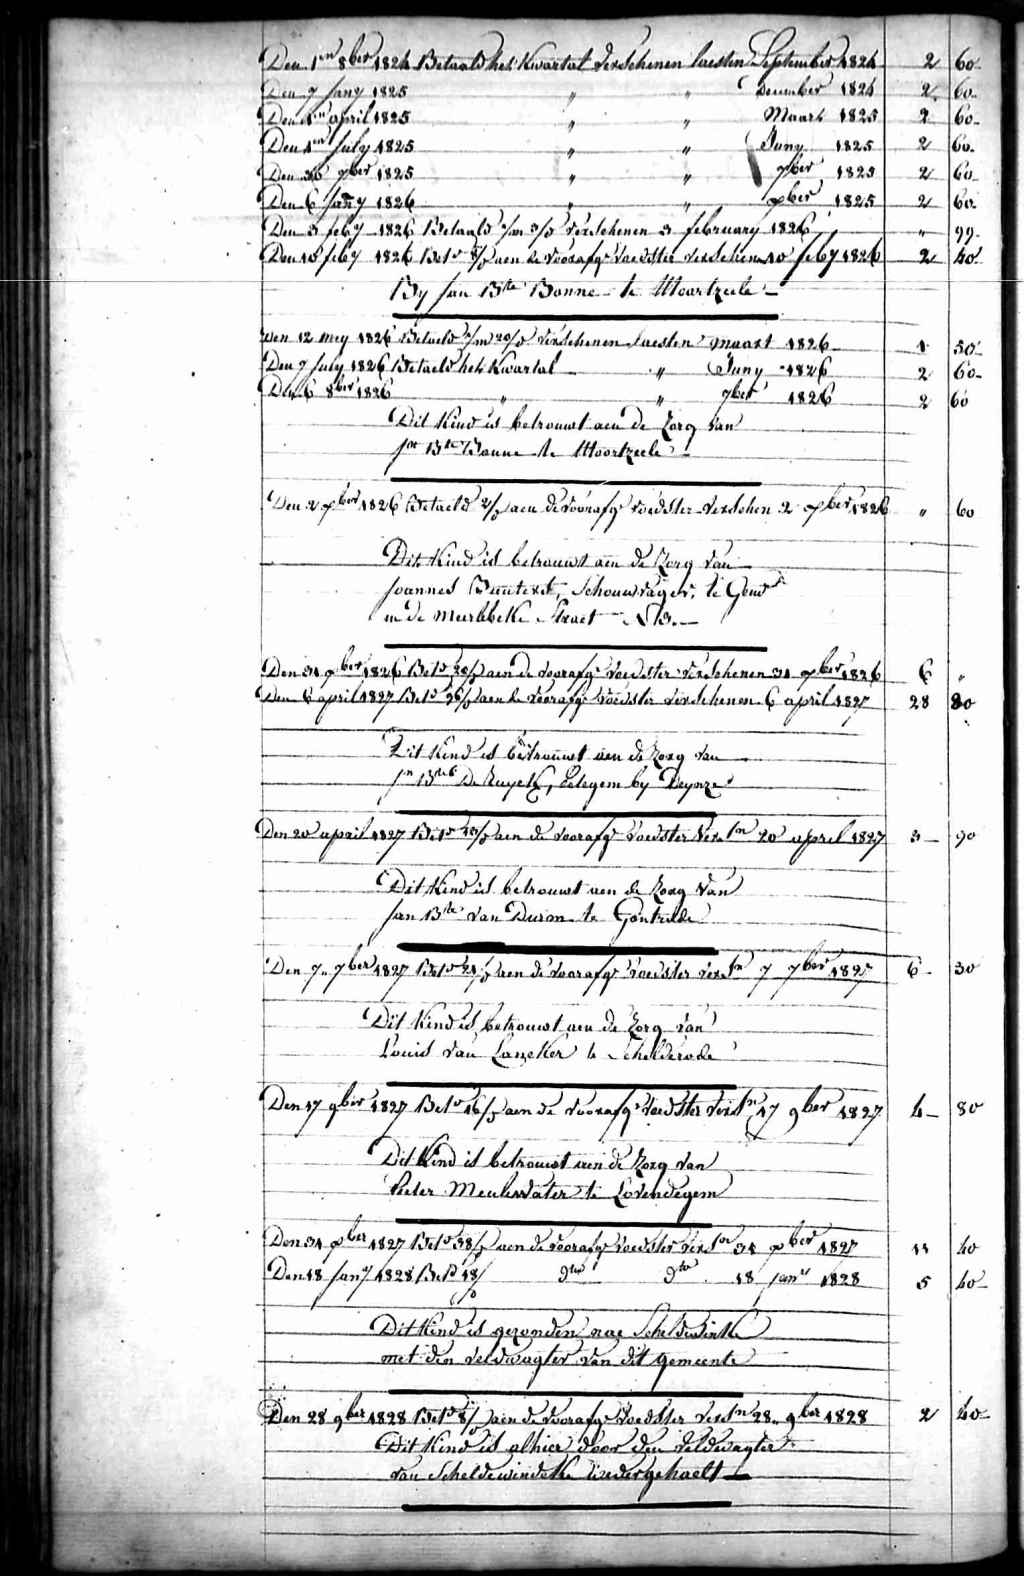 Den 1en 8ber 1824 Betaald het Kwartal Verschenen laesten September 1824 2 60
Den 7 Jany 1825 " " December 1824 2 60
Den 1en april 1825 " " Maart 1825 2 60
Den 1en July 1825 " " Juny 1825 2 60
Den 30 7ber 1825 " " 7ber 1825 2 60
Den 6 Jany 1826 " " xber 1825 2 60
Den 3 feby 1826 Betaald Verschenen 3 february 1826 " 99
Den 10 feby 1826 Bet.d aen de voorafge voedster verschen 10 feby 1826 2 40
By Jan Bte Bonne te Moortzeele
Den 12 mey 1826 Betaeld verschenen laesten maart 1826 1 50
Den 7 July 1826 Betaeld het Kwartal " Juny 1826 2 60
Den 6 8ber 1826 " " 7ber 1826 2 60
Dit Kind is betrouwt aen de Zorg van
Jn Bte Bonne te Moortzeele
Den 2 xber 1826 Betaeld aen de voorafge voedster verschen 2 xber 1826 " 60
Dit Kind is betrouwt aen de Zorg van
Joannes Schouwvager, te Gend
in de Meirelbeke Straet
Den 31 xber 1826 Bet.d aen de voorafge voedster verschenen 31 xber 1826 6 "
Den 6 april 1827 Bet.d 96 aen de voorafge voedster verschenen 6 april 1827 28 80
Dit Kind is betrouwt aen de Zorg van
Jn Bte De Ruyck, Petegem by Deynze
Den 20 april 1827 Bet.d 13 aen de voorafge voedster versn 20 april 1827 3 90
Dit Kind is betrouwt aen de Zorg van
Jan Bte van Durm te Gontrode
Den 7 7ber 1827 Bet.d 21 aen de voorafge voedster versn 7 7ber 1827 6 30
Dit Kind is betrouwt aen de Zorg van
Louis van Laneker te Schelderode
Den 17 9ber 1827 Bet.d 16 aen de voorafge voedster versn 17 9ber 1827 4 80
Dit Kind is betrouwt aen de Zorg van
Pieter Meulewater te Lovendegem
Den 31 xber 1827 Bet.d 38 aen de voorafge voedster versn 31 xber 1827 11 40
Den 18 Jany 1828 Bet.d 18 dto dto 18 jany 1828 5 40
Dit Kind is gezonden nae Scheldewinke
met den veldwagter van dit gemeente
Den 28 9ber 1828 Bet.d 8 aen de voorafge voedster versn 28 9ber 1828 2 40
Dit Kind is alhier door den veldwagter
van Scheldewindeke wedergehaelt